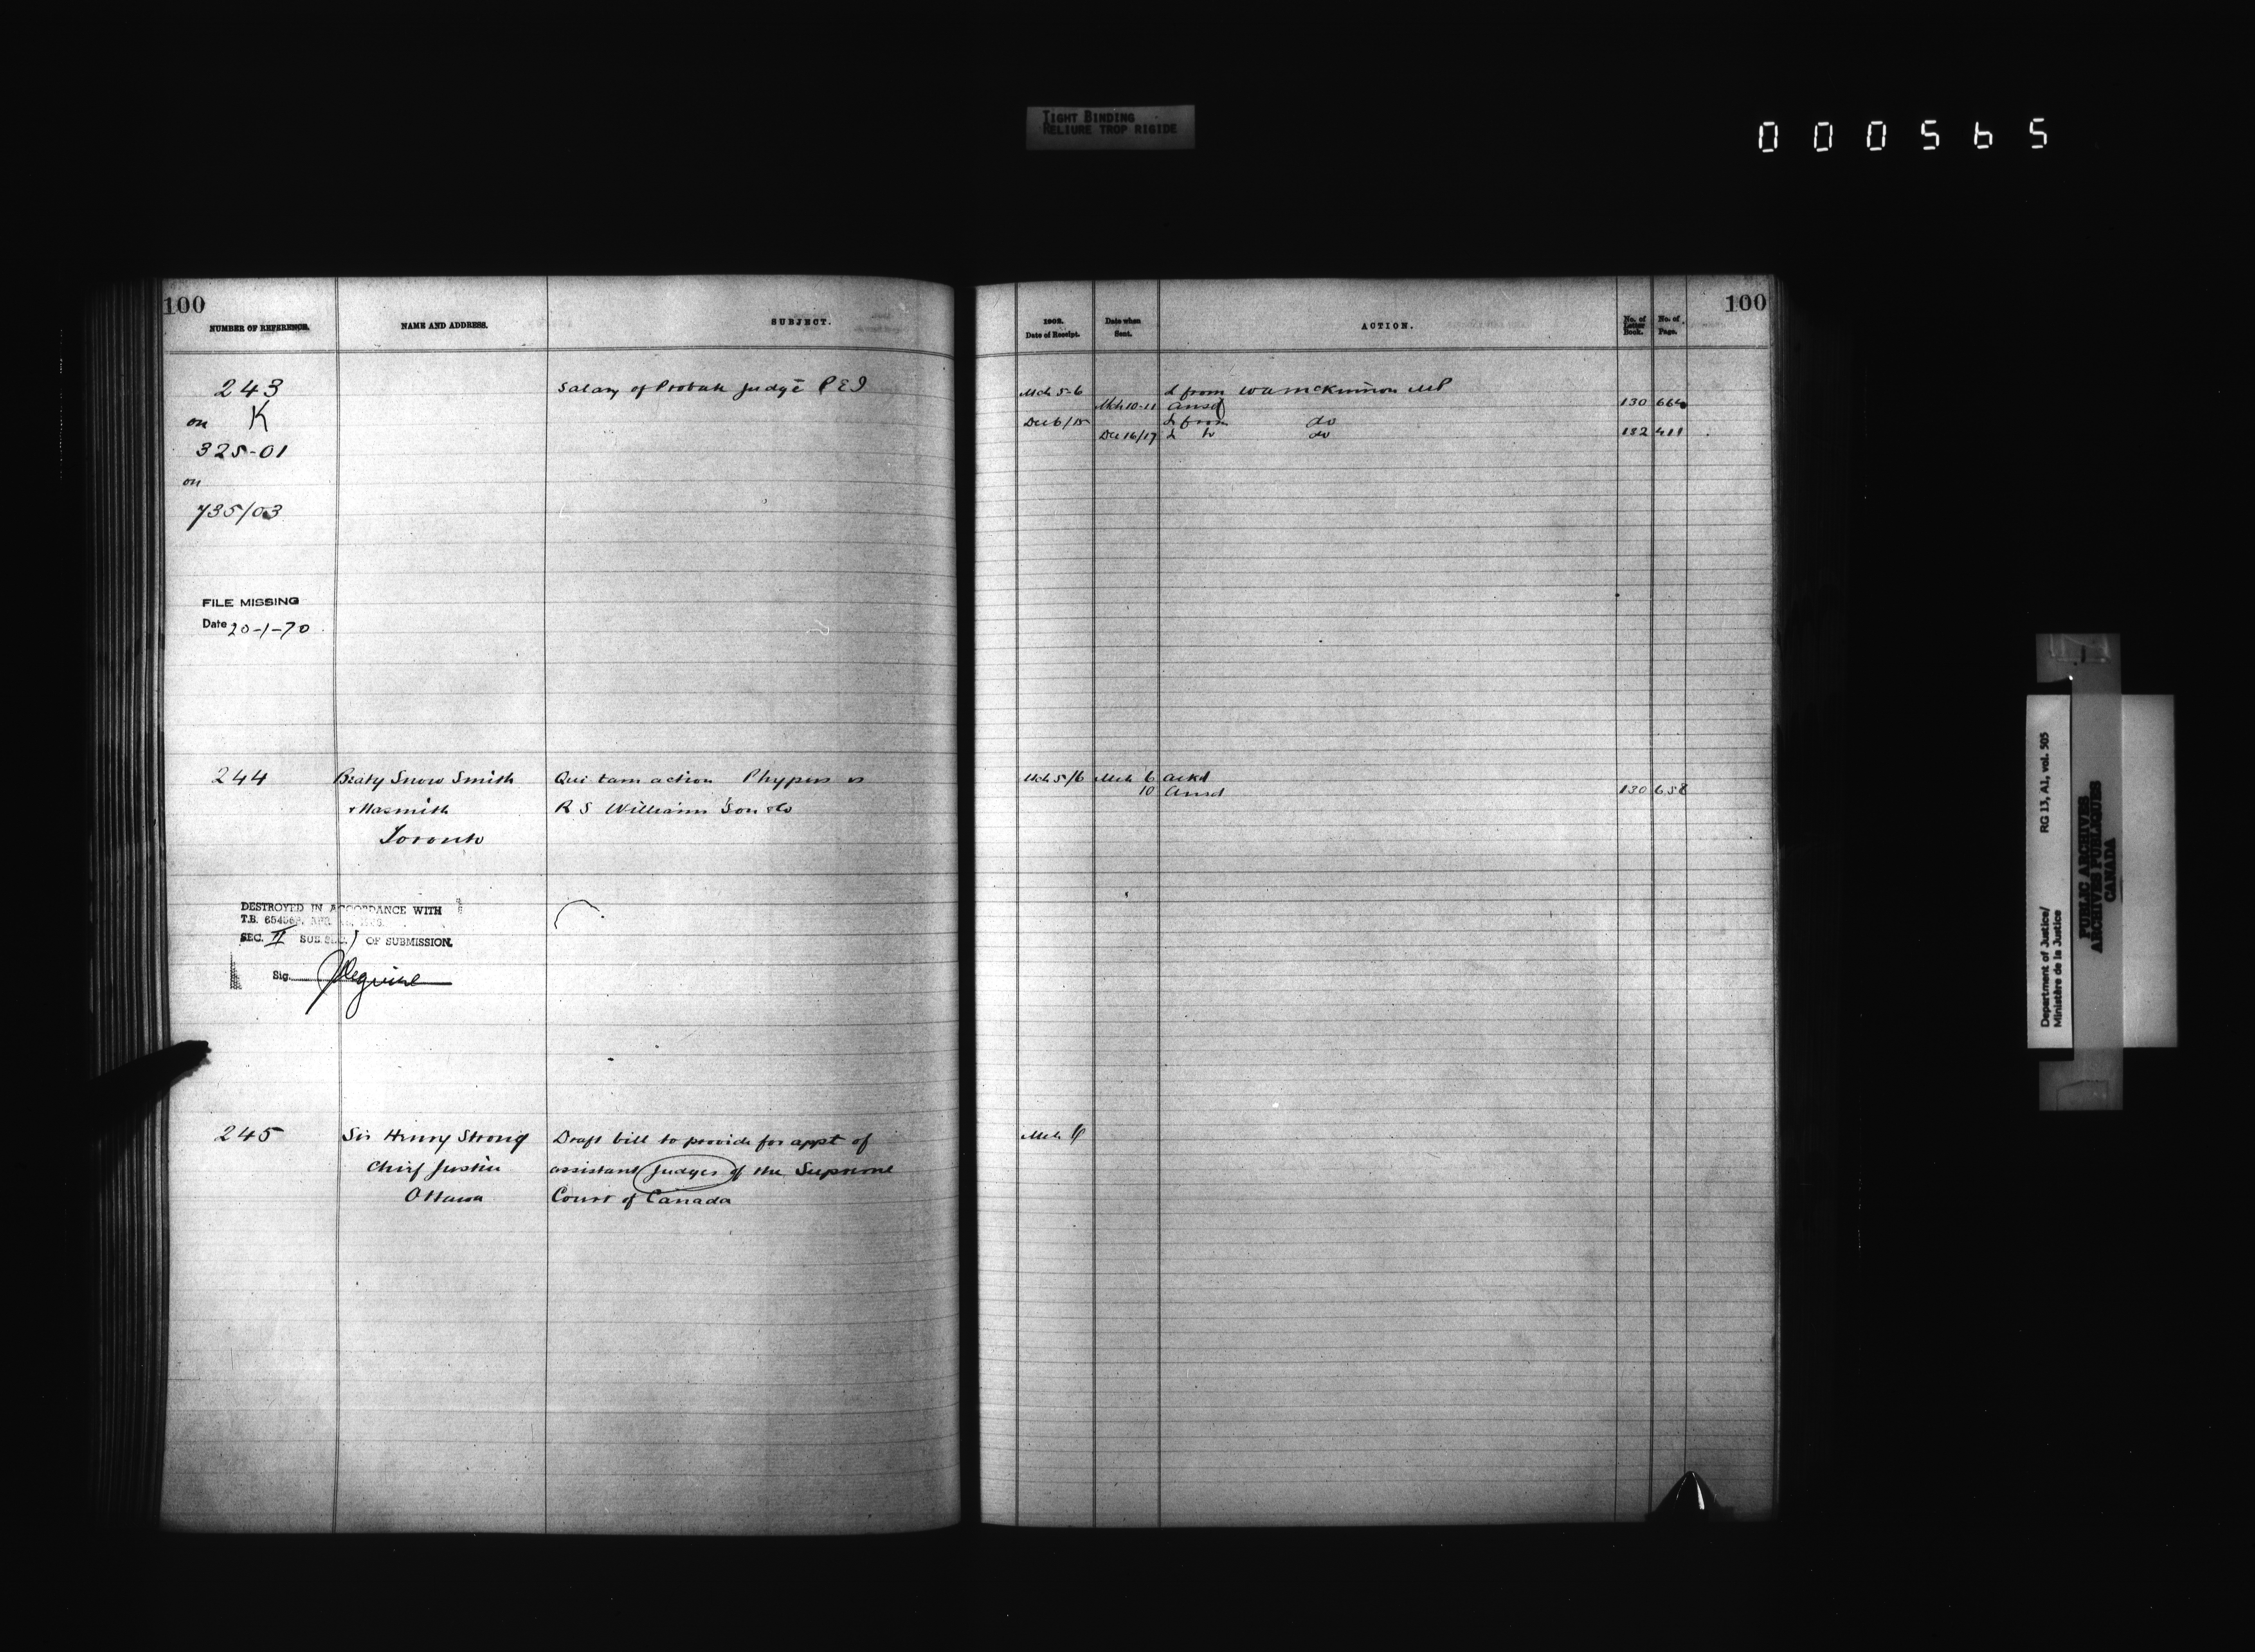 TIGHT BINDING
RELIURE TROP RIGIDE
000565
100
NUMBER OF REFERENCE.
NAME AND ADDRESS.
SUBJECT.
243
Salary of Probate Judge P E I
on K
325-01
on
735/03
FILE MISSING
Date 20-1-70
244
Beaty Snow Smith
Qui tam action Phypers vs
& Nasmith
R S Williams Son & Co
Toronto
DESTROYED IN ACCORDANCE WITH
T.B.
SEC. II SUB SEC. 1 OF SUBMISSION.
Sig.
245
Sir Henry Strong
Draft bill to provide for appt of
Chief Justice
assistant Judges of the Supreme
Ottawa
Court of Canada
100
1902.
Date of Receipt.
Date when
Sent.
ACTION.
No. of
Letter
Book.
No. of
Page.
Mch 5-6 L from W A McKinnon MP
Mch 10-11 Ansd 130 664
Dec 6/15 L from do
Dec 16/17 L to do 132 411
Mch 5/6 Mch 6 ackd
10 Ansd 130 658
Mch 6
Department of Justice/
Ministère de la Justice
RG 13, A1, vol. 505
PUBLIC ARCHIVES
ARCHIVES PUBLIQUES
CANADA